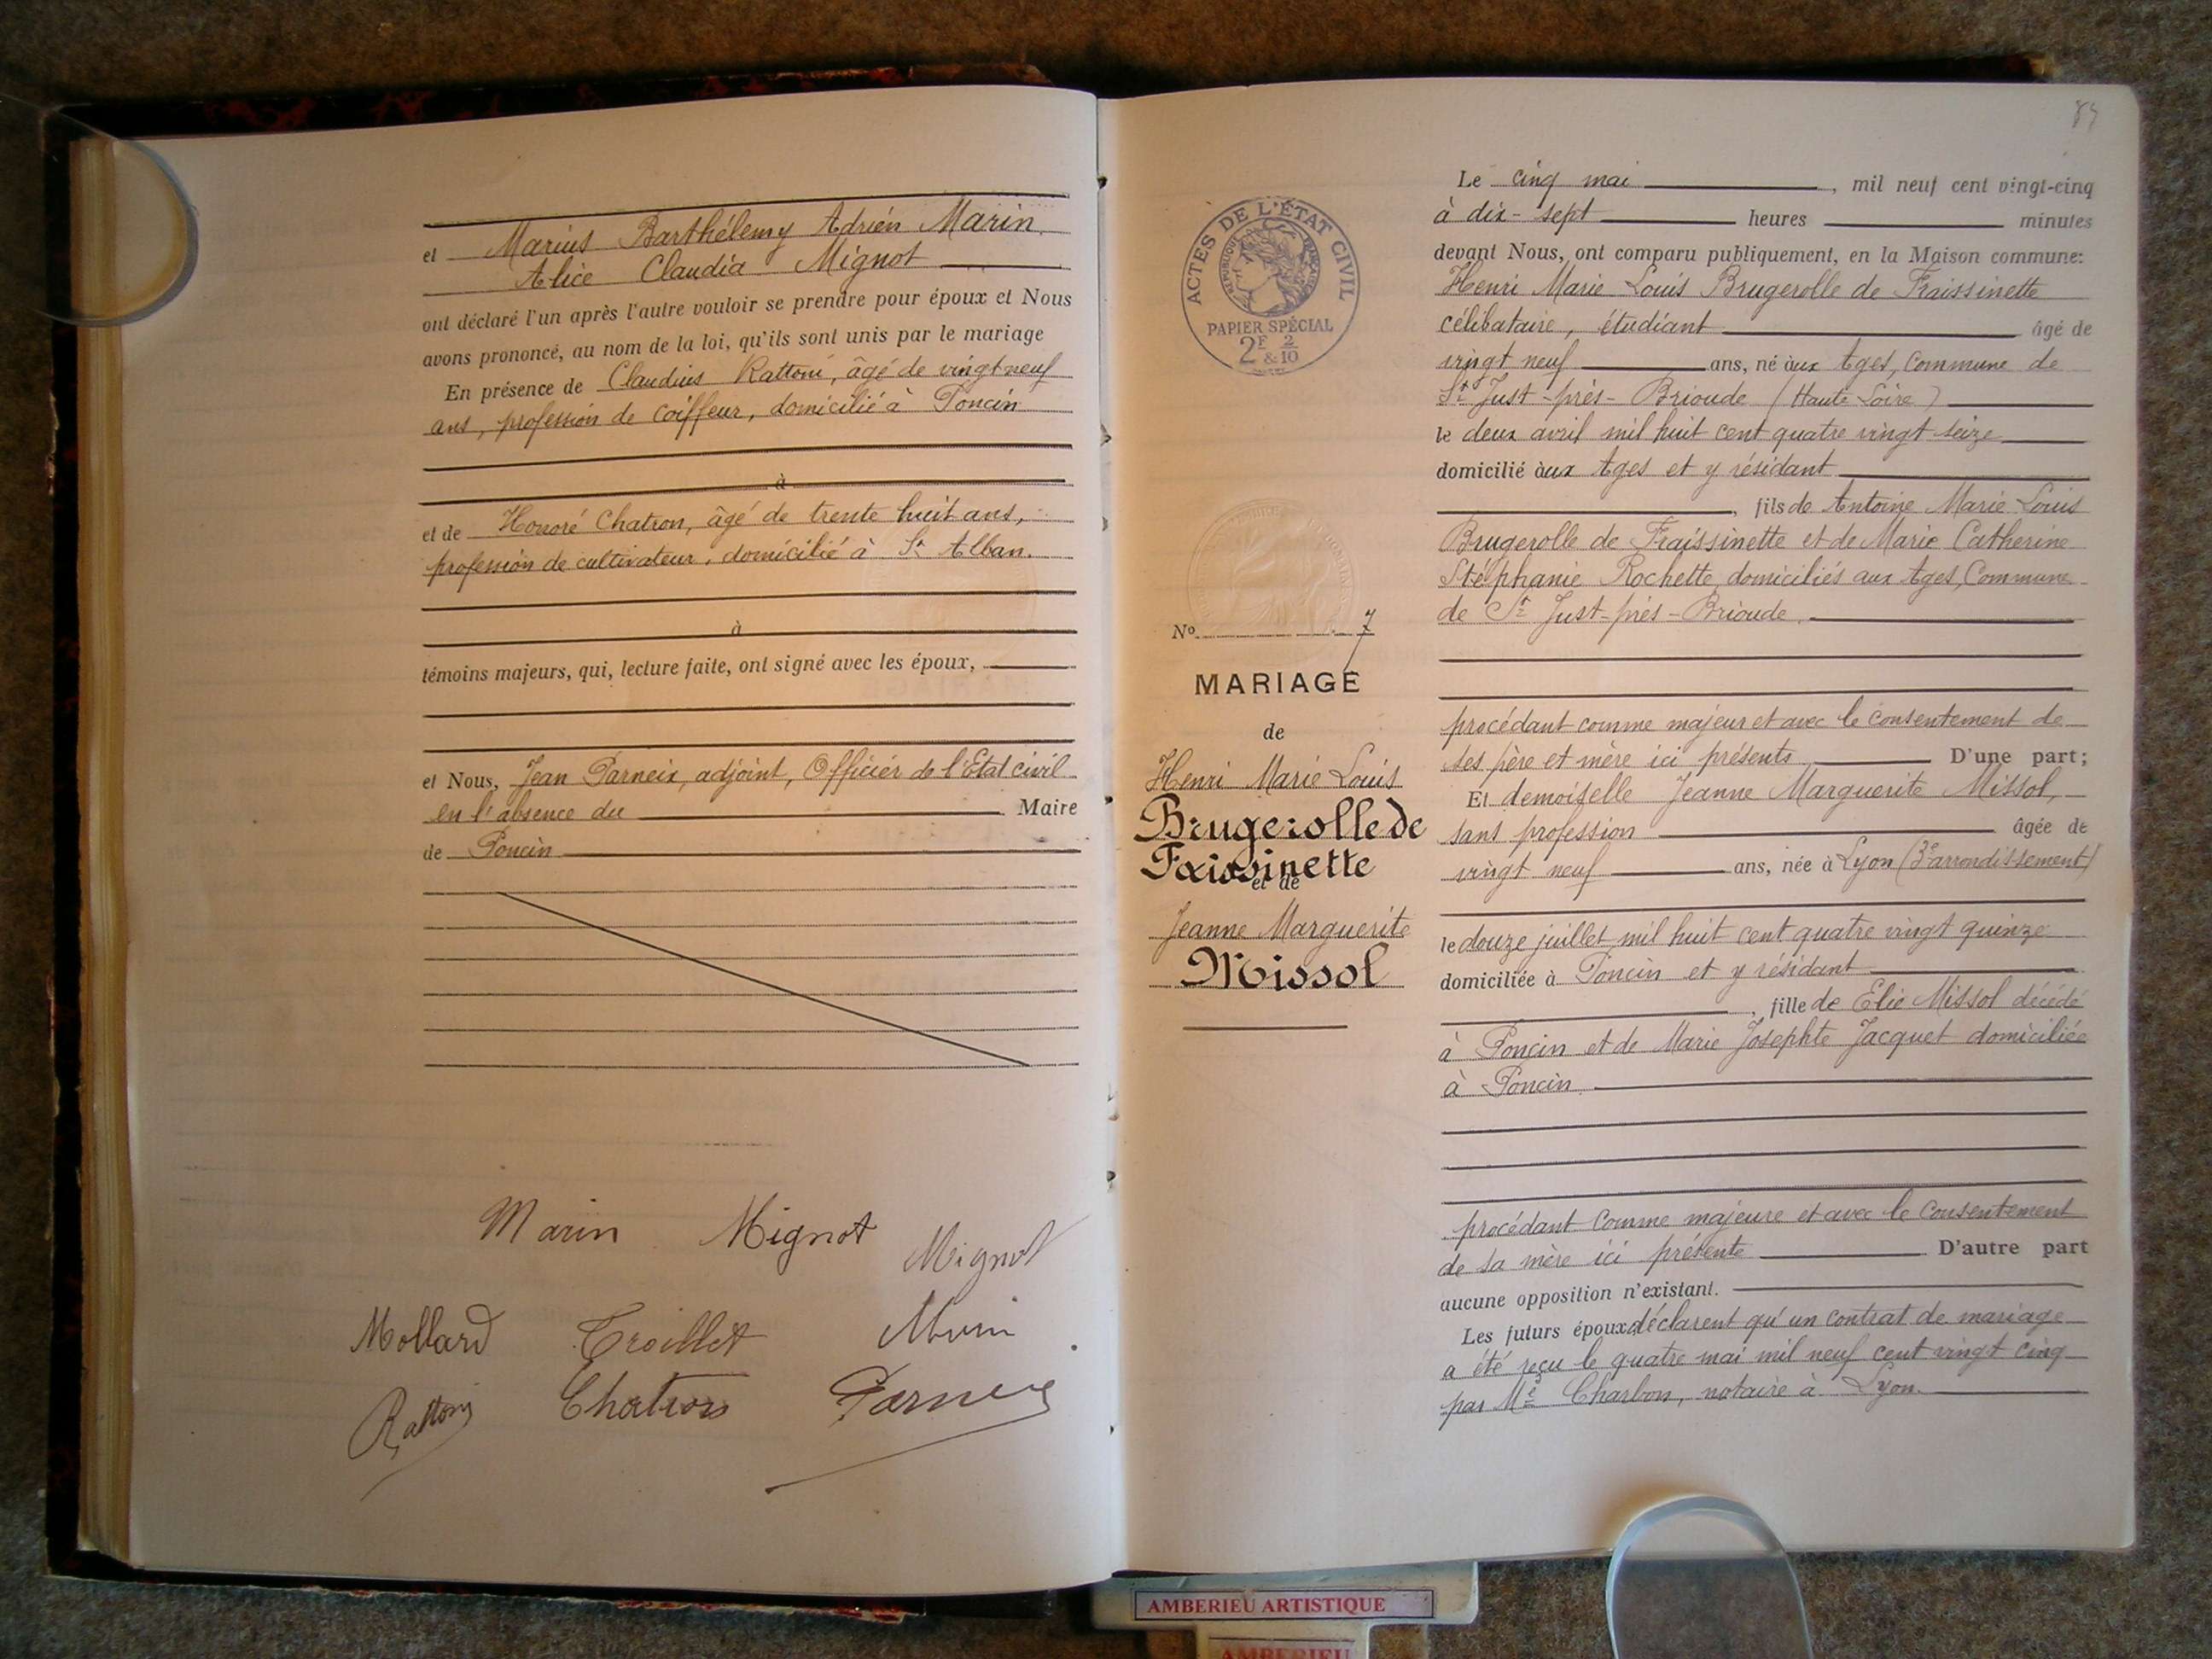 et Marius Barthélemy Adrien Marin
Alice Claudia Mignot
ont déclaré l'un après l'autre vouloir se prendre pour époux et Nous
avons prononcé, au nom de la loi, qu'ils sont unis par le mariage
En présence de Claudius Rattoni, âgé de vingt neuf
ans, profession de coiffeur, domicilié à Poncin
à
et de Honoré Chatron, âgé de trente huit ans,
profession de cultivateur, domicilié à St Alban.
à
témoins majeurs, qui, lecture faite, ont signé avec les époux,
et Nous, Jean Parneix, adjoint, Officier de l'Etat civil
en l'absence du Maire
de Poncin
Marin Mignot
Mignot
Mollard Troillet
Rattoni Chatron Parneix
84
ACTES DE L'ÉTAT CIVIL
RÉPUBLIQUE FRANÇAISE
PAPIER SPÉCIAL
2F 2
& 10
No 7
MARIAGE
de
Henri Marie Louis
Brugerolle de
Fraissinette
et de
Jeanne Marguerite
Missol
Le cinq mai, mil neuf cent vingt-cinq
à dix-sept heures minutes
devant Nous, ont comparu publiquement, en la Maison commune:
Henri Marie Louis Brugerolle de Fraissinette
célibataire, étudiant âgé de
vingt neuf ans, né aux Ages, Commune de
St Just-près-Brioude (Haute Loire)
le deux avril mil huit cent quatre vingt seize
domicilié aux Ages et y résidant
, fils de Antoine Marie Louis
Brugerolle de Fraissinette et de Marie Catherine
Stéphanie Rochette, domiciliés aux Ages, Commune
de St Just-près-Brioude.
procédant comme majeur et avec le consentement de
ses père et mère ici présents D'une part;
Et demoiselle Jeanne Marguerite Missol,
sans profession âgée de
vingt neuf ans, née à Lyon (3e arrondissement)
le douze juillet mil huit cent quatre vingt quinze
domiciliée à Poncin et y résidant
, fille de Elie Missol décédé
à Poncin et de Marie Josephte Jacquet domiciliée
à Poncin.
procédant comme majeure et avec le consentement
de sa mère ici présente D'autre part
aucune opposition n'existant.
Les futurs époux déclarent qu'un contrat de mariage
a été reçu le quatre mai mil neuf cent vingt cinq
par Me Charbon, notaire à Lyon.
AMBERIEU ARTISTIQUE
AMBERIEU